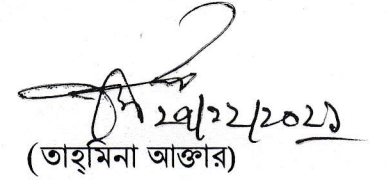 ২৭/১২/২০২১
(তাহ্‌মিনা আক্তার)